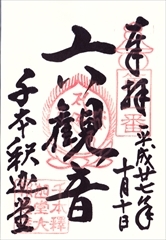 奉拝
平成廿七年
十月十日
六観音
千本釈迦堂